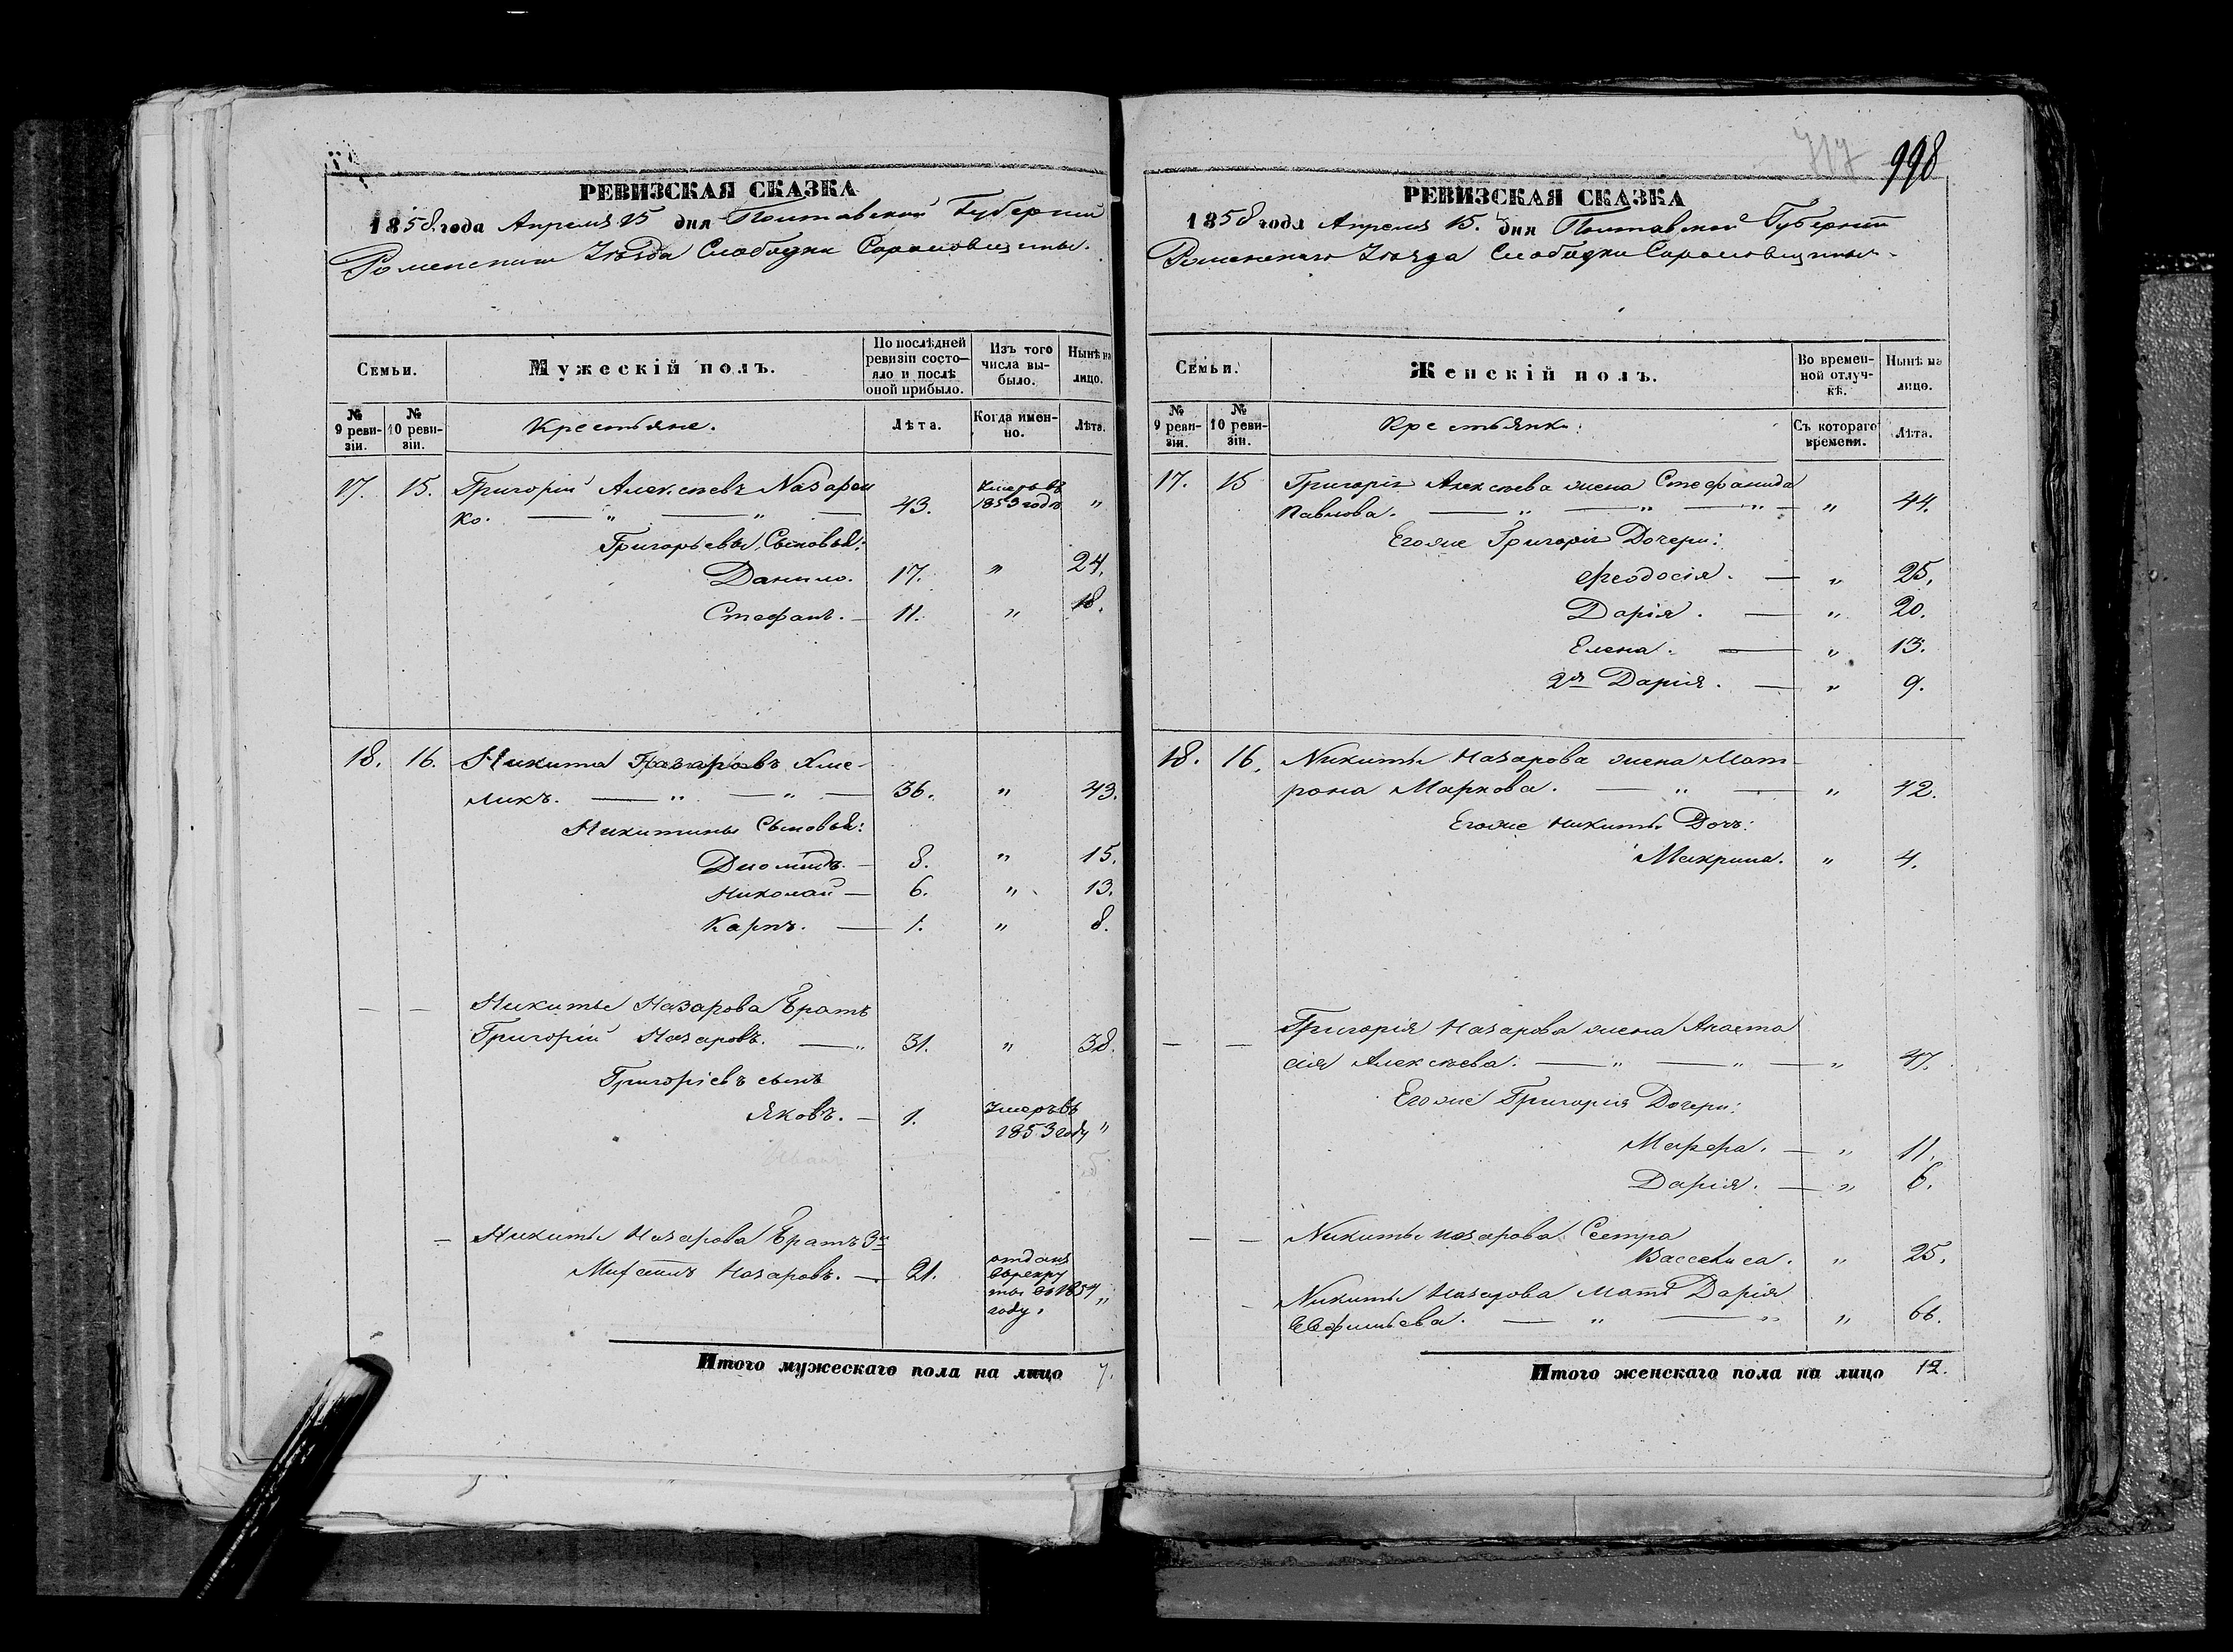 РЕВИЗСКАЯ СКАЗКА
1858 года Апреля 15 дня Полтавской Губернии
Роменскаго Уѣзда Слободки
Семьи.
Мужескій полъ.
По послѣдней ревизіи состо-
яло и послѣ
оной прибыло.
Изъ того
числа вы-
было.
Нынѣ на
лицо.
№
9 реви-
зіи.
№
10 реви-
зіи.
Крестьяне.
Лѣта.
Когда имен-
но.
Лѣта.
17. 15. Григорій Алексѣевъ Назарен
ко. — " — " — 43. Умеръ въ 1853 годѣ "
Григорьевы Сыновья:
Данило. 17. " 24.
Стефанъ. — 11. " 18.
18. 16. Никита Назаровъ Хме-
ликъ. — " — " — 36. " 43.
Никитины Сыновья:
Диомидъ. — 8. " 15.
Николай — 6. " 13.
Карпъ. — 1. " 8.
— — Никиты Назарова Братъ
Григорій Назаровъ. — " 31. " 38.
Григоріевъ сынъ
Яковъ. — 1. Умеръ въ
1853 году "
Иванъ
— Никиты Назарова Братъ 3й
Назаровъ. — 21. отданъ
въ рекру
ты въ 1854 "
году.
Итого мужескаго пола на лицо 7.
717 998
РЕВИЗСКАЯ СКАЗКА
1858 года Апреля 15. дня Полтавской Губерніи
Роменскаго Уѣзда Слободки
Семьи.
Женскій полъ.
Во времен-
ной отлуч-
кѣ.
Нынѣ на
лицо.
№
9 реви-
зіи.
№
10 реви-
зіи.
Крестьянки:
Съ котораго
времени.
Лѣта.
17. 15 Григорія Алексѣева жена Стефанида
Павлова. — " — " — " — " 44.
Егоже Григорія Дочери:
Феодосія. — " 25.
Дарія. — " 20.
Елена. — " 13.
2я Дарія. — " 9.
18. 16. Никиты Назарова жена Мат-
рона Маркова. — " — " 42.
Егоже Никиты Дочь:
Макрина. " 4.
— — Григорія Назарова жена Анаста
сія Алексѣева. — " — " — " 47.
Егоже Григорія Дочери:
Марфа. — " 11.
Дарія. — " 6.
— — Никиты Назарова Сестра
Васселиса. " 25.
— Никиты Назарова Мать Дарія
— " — " " 66.
Итого женскаго пола на лицо 12.